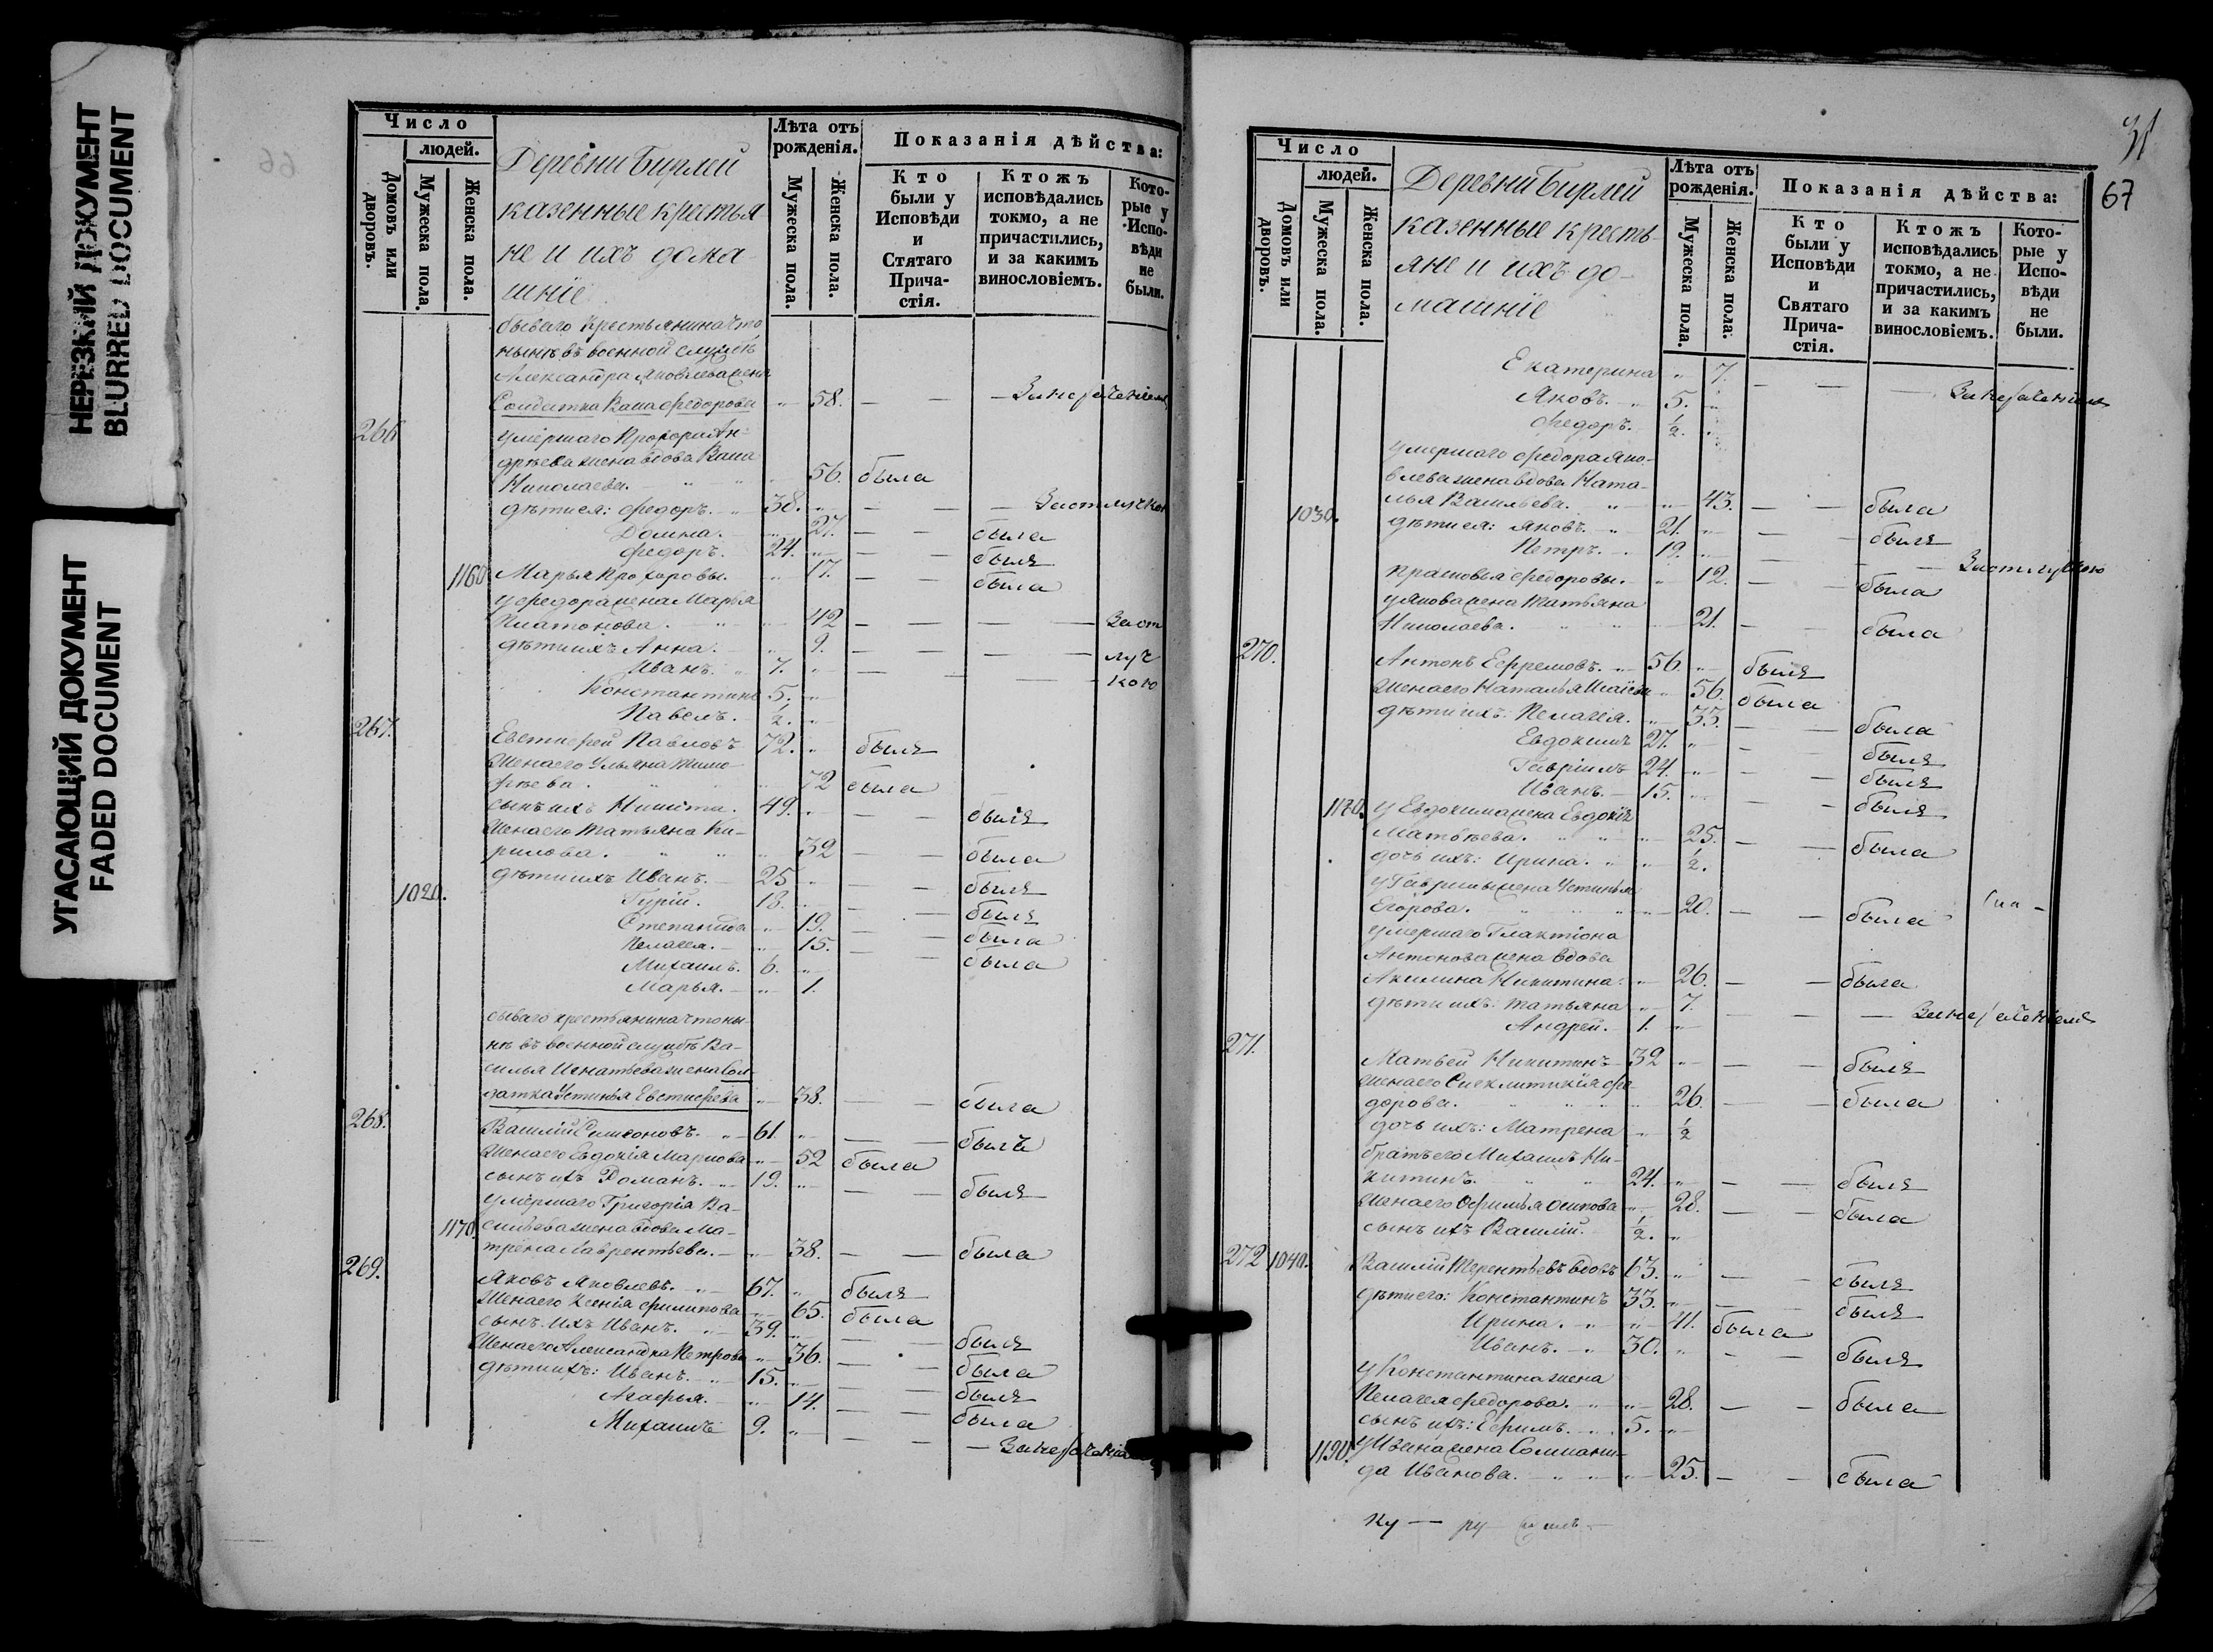 НЕРЕЗКИЙ ДОКУМЕНТ
BLURRED DOCUMENT
УГАСАЮЩИЙ ДОКУМЕНТ
FADED DOCUMENT
Число
людей.
Домовъ или дворовъ.
Мужеска пола.
Женска пола.
Деревни Бирлей
казенные крестья
не и ихъ дома
шніе
Лѣта отъ рожденія.
Мужеска пола.
Женска пола.
Показанія дѣйства:
Кто были у Исповѣди и Стятаго Прича-стія.
Ктожъ исповѣдались токмо, а не причастились, и за какимъ винословіемъ.
Кото-рые у Испо-вѣди не были.
бываго крестьянина что
нынѣ въ военной службѣ
Александра Яковлева жена
Солдатка Васса Федорова " 58. — —
266 умершаго Прохора Ан-
дреева жена вдова Васса
Николаева. " 56. была
дѣти ея: Федоръ. 38. " — —
Домна. " 27. — — была
Федоръ. 24. " — — былъ
1160 Марья Прохоровы. " 17. — — была
у Федора жена Марья
Платонова. " 42 — — — За от
дѣти ихъ Анна. " 9. — — — луч
Иванъ. 7. " — — — кою
Константинъ 5. "
Павелъ. ½. "
267. Евстифей Павловъ 72. " былъ
жена его Ульяна Тимо-
феева. " 72 была
сынъ ихъ Никита. 49. " — — былъ
жена его Татьяна Ки-
рилова. " 32 — — была
дѣти ихъ Иванъ. 25 " — — былъ
1020. Гурій. 18. " — — былъ
Степанида " 19. — — была
Пелагея. " 15. — — была
Михаилъ. 6. "
Марья. " 1.
бываго крестьянина что ны-
нѣ въ военной службѣ Ва-
силья Игнатьева жена Сол-
датка Устинья Евстифеева " 38. — — была
268. Василій Симеоновъ. 61. " — — былъ
жена его Евдокія Маркова " 52 была
сынъ ихъ Романъ. 19. " — — былъ
умершаго Григорія Ва-
1170 сильева жена вдова Ма-
трена Лаврентьева. " 38. — — была
269. Яковъ Яковлевъ. 67. " былъ
жена его Ксенія Филипова " 65. была
сынъ ихъ Иванъ. 39. " — — былъ
жена его Александра Петрова " 36. — — была
дѣти ихъ: Иванъ. 15. " — — былъ
Агафья. " 14. — — была
Михаилъ 9. " — — —
31
67
Число
людей.
Домовъ или дворовъ.
Мужеска пола.
Женска пола.
Деревни Бирлей
казенные кресть-
яне и ихъ до-
машніе
Лѣта отъ рожденія.
Мужеска пола.
Женска пола.
Показанія дѣйства:
Кто были у Исповѣди и Святаго Прича-стія.
Ктожъ исповѣдались токмо, а не причастились, и за какимъ винословіемъ.
Кото-рые у Испо-вѣди не были.
Екатерина " 7. — — —
Яковъ. 5. "
Федоръ. ½. "
умершаго Федора Яко-
влева жена вдова Ната-
лья Васильева. " 43. — — была
1030. дѣти ея: Яковъ. 21. " — — былъ
Петръ. 19. " — — —
Прасковья Федоровы. " 12. — — была
у Якова жена Татьяна
Николаева. " 21. — — была
270. Антонъ Ефремовъ. 56. " былъ
жена его Наталья " 56. была
дѣти ихъ: Пелагея. " 33. — — была
Евдокимъ 27. " — — былъ
Гавріилъ 24. " — — былъ
Иванъ. 15. " — — былъ
у Евдокима жена Евдокія
Матвѣева. " 25. — — была
дочь ихъ: Ирина. " ½.
у Гавриилы жена Устинья
Егорова. " 20. — — была
умершаго Галактіона
Антонова жена вдова
Акилина Никитина. " 26. — — была
дѣти ихъ: Татьяна " 7. — — —
Андрей. 1. "
271. Матвей Никитинъ 32 " — — былъ
жена его Синклитикія Фе-
дорова. " 26. — — была
дочь ихъ: Матрена " ½
братъ его Михаилъ Ни-
китинъ. 24. " — — былъ
жена его Офимья Осипова " 28. — — была
сынъ ихъ Василій. ½. "
272 1040. Василій Терентьевъ вдовъ 63. " — — былъ
дѣти его: Константинъ 33. " — — былъ
Ирина. " 41. была
Иванъ. 30. " — — былъ
у Константина жена
Пелагея Федорова. " 28. — — была
сынъ ихъ: Ефимъ. 5. "
1190. у Ивана жена Соломани-
да Иванова. " 25. — — была